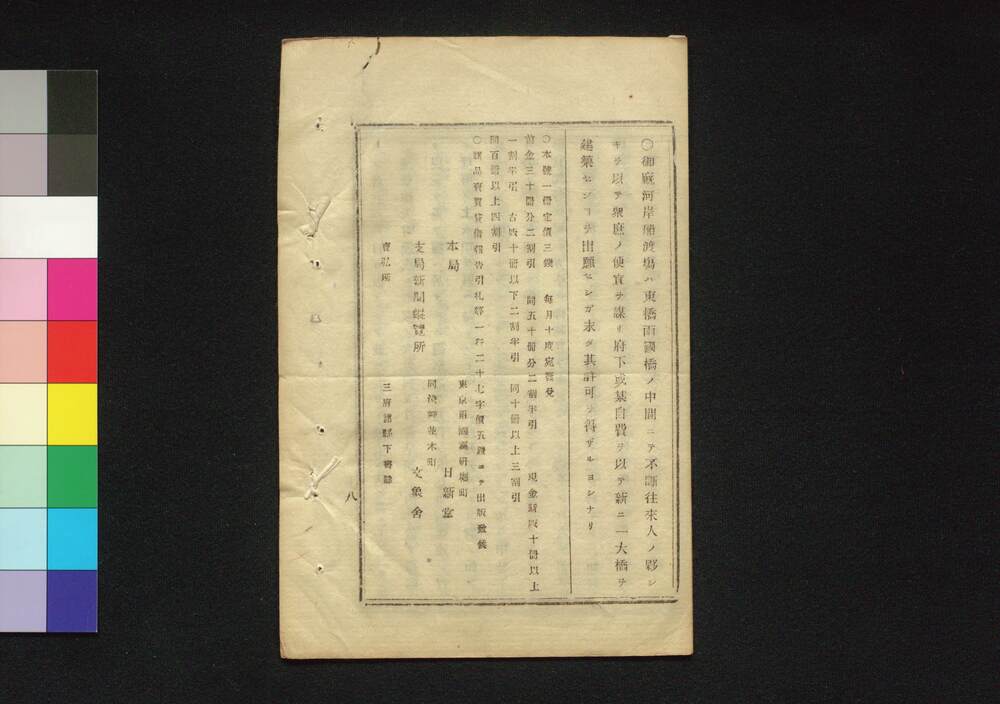 〇御廐河岸船渡塲ハ東橋兩國橋ノ中間ニテ不斷往來人ノ夥シ
キヲ以テ衆庶ノ便宜ヲ謀リ府下或某自費ヲ以テ新ニ一大橋ヲ
建築センヿヲ出願セシガ未ダ其許可ヲ得ザルヨシナリ
〇本號一冊定價三錢 毎月十度宛發兌
前金三十冊分二割引 同五十冊分二割半引 現金新版十冊以上
一割半引 古版十冊以下二割半引 同十冊以上三割引
同百冊以上四割引
〇諸品賣買貸借報告引札等一行二十七字價五錢ヨテ出版致候
本局 東京兩國藥研堀町 日新堂
支局新聞縱覽所 同淺草並木町 文象舍
賣弘所 三府諸縣下書肆
八